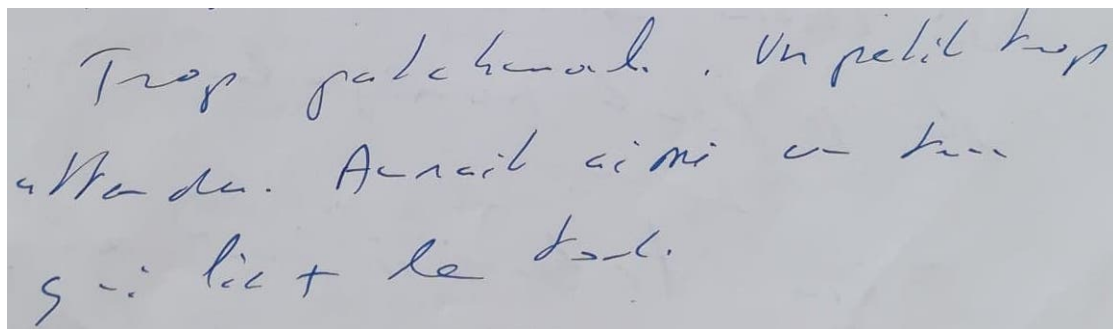 Trop patchwork. Un petit trop
attendu. Aurait aimé un truc
qui lie + le tout.